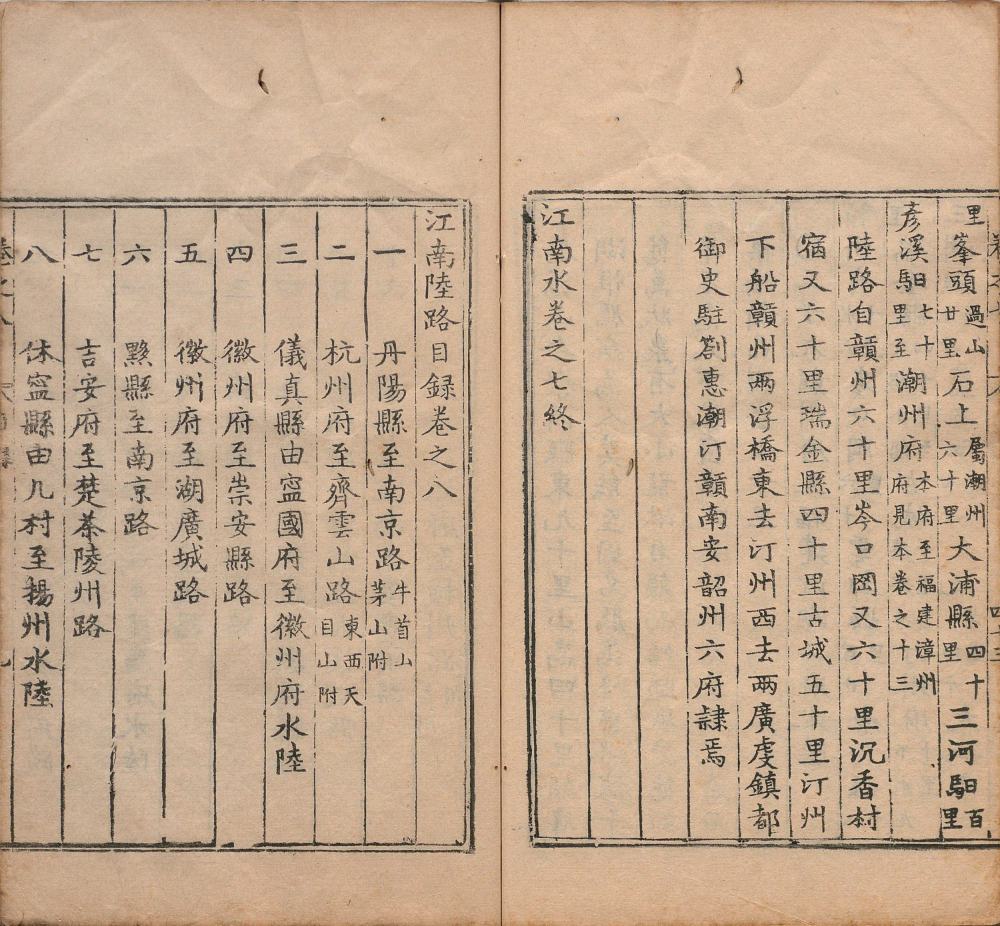 里峯頭過山廿里石上屬潮州六十里大浦縣四十里三河馹百里
彥溪馹七十里至潮州府本府至福建漳州府見本卷之十三
陸路自贛州六十里岑口岡又六十里沉香村
宿又六十里瑞金縣四十里古城五十里汀州
下船贛州兩浮橋東去汀州西去兩廣虔鎮都
御史駐劄惠潮汀贛南安韶州六府隸焉
江南水卷之七終
江南陸路目録卷之八
一 丹陽縣至南京路牛首山茅山附
二 杭州府至齊雲山路東西天目山附
三 儀真縣由寍國府至徽州府水陸
四 徽州府至崇安縣路
五 徽州府至湖廣城路
六 黟縣至南京路
七 吉安府至楚茶陵州路
八 休寍縣由几村至揚州水陸